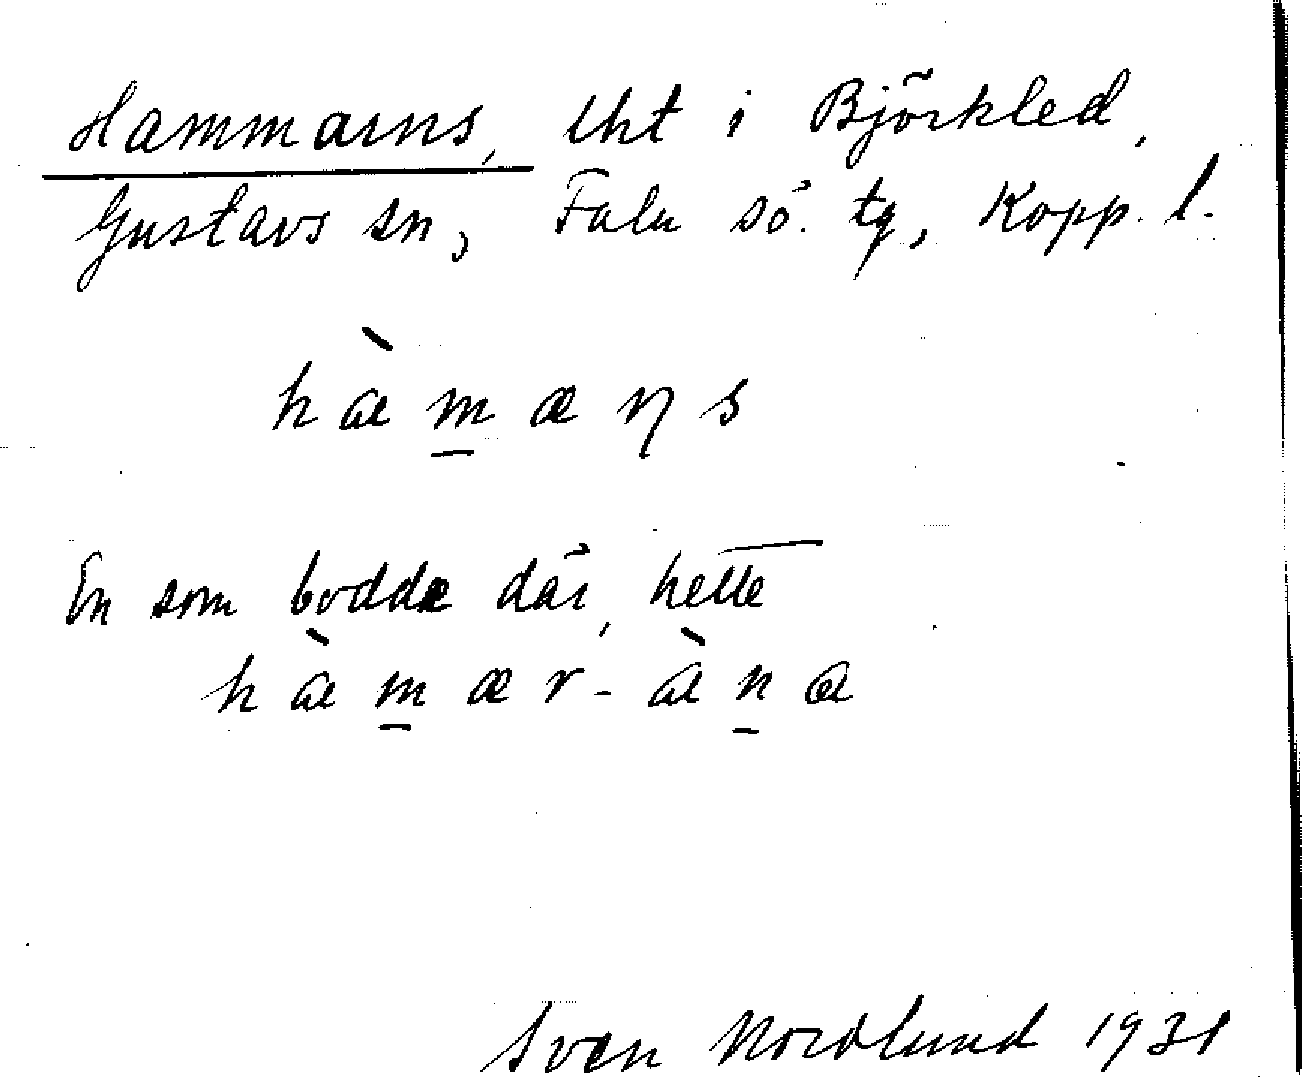 Hammarns, lht i Björkled,
Gustavs sn, Falu sö. tg, Kopp. l.
hàmæɳs
En som bodde där, hette
hàmær-àna
Sven Nordlund 1931